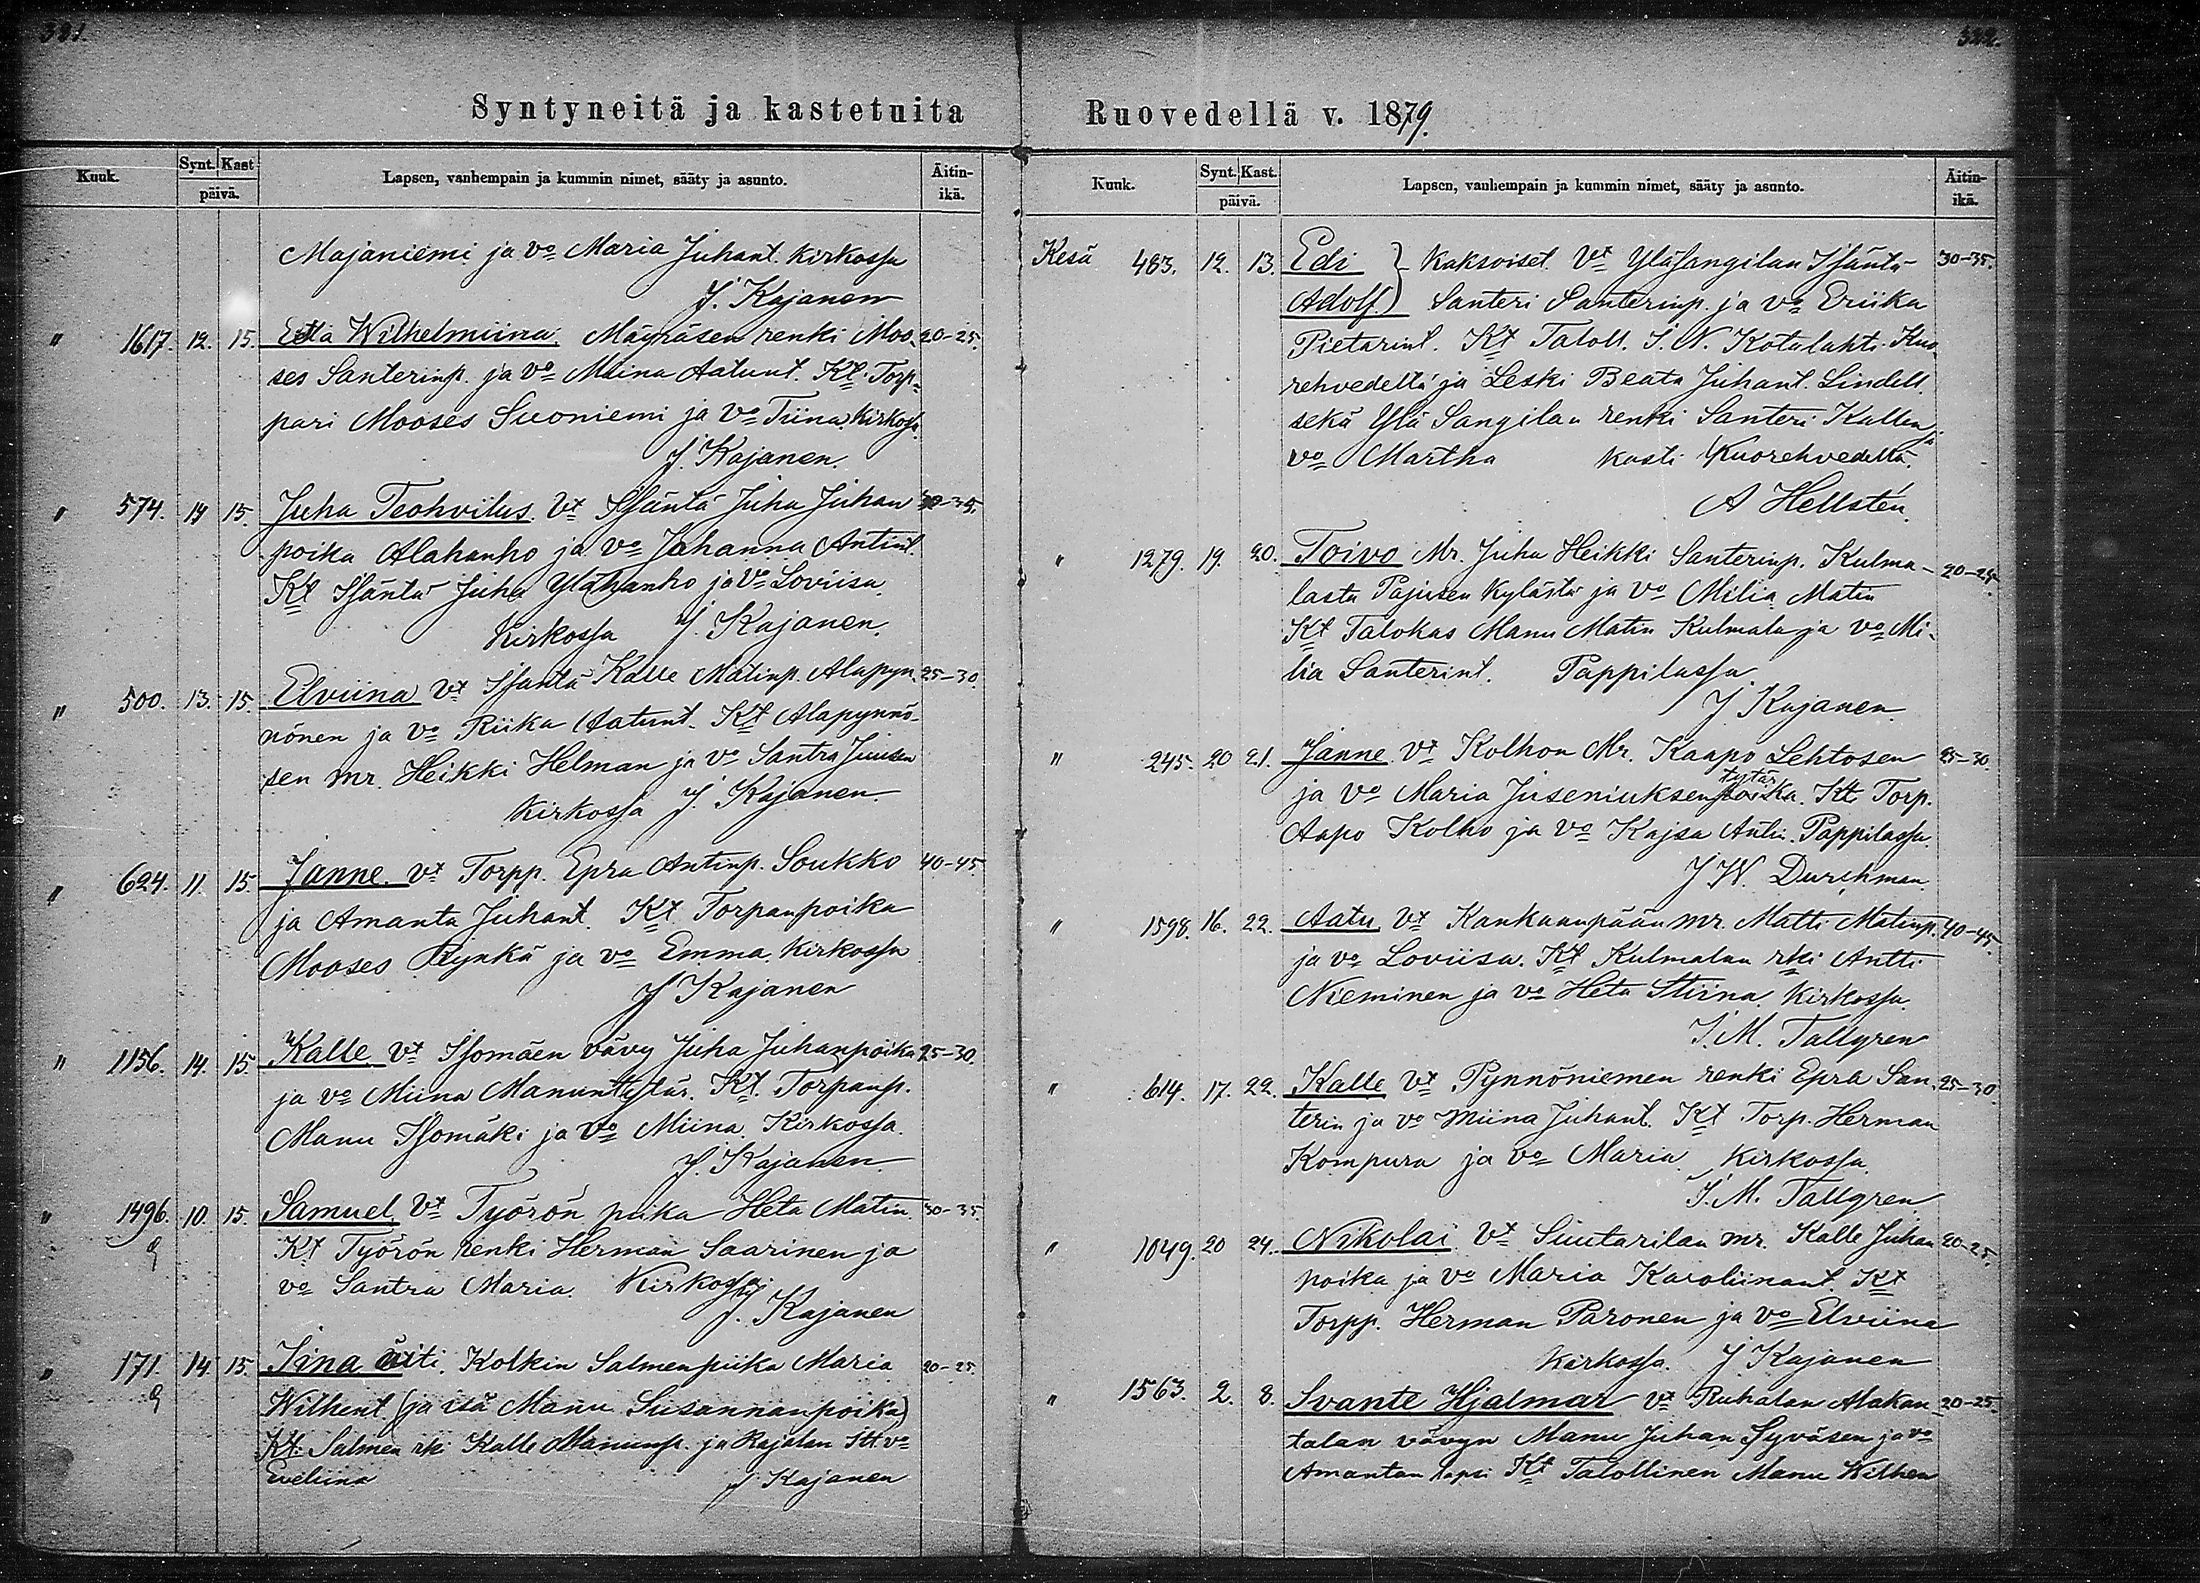 321.
Syntyneitä ja kastetuita
Kuuk. Synt. Kast päivä. Lapsen, vanhempain ja kummin nimet, sääty ja asunto. Äitin-ikä.
Majaniemi ja vo Maria Juhant. Kirkossa
J. Kajanen
" 1617. 12. 15. Etla Wilhelmiina. Mäyräsen renki Moo- 20-25.
ses Santerinp. ja vo Miina Aatunt. Kt. Torp-
pari Mooses Suoniemi ja vo Tiina. Kirkossa
J. Kajanen.
" 574. 14 15. Juha Teohvilus. vt Isäntä Juha Juhan 30-35.
poika Alahanho ja vo Johanna Antint.
Kt Isäntä Juha Ylähanho ja vo Loviisa.
Kirkossa J. Kajanen.
" 500. 13. 15. Elviina vt Isäntä Kalle Matinp. Alapyn- 25-30.
nönen ja vo Riika Aatunt. Kt Alapynnö-
sen mr. Heikki Helman ja vo Santra Juusen
Kirkossa J. Kajanen.
" 624. 11. 15. Janne. vt Torpp. Epra Antinp. Soukko 40-45
ja Amanta Juhant. Kt Torpanpoika
Mooses Rynkä ja vo Emma. Kirkossa
J Kajanen
" 1156. 14. 15. Kalle vt Isomäen vävy Juha Juhanpoika 25-30.
ja vo Miina Manuntytär. Kt. Torpanp.
Manu Isomäki ja vo Miina. Kirkossa.
J. Kajanen.
" 1496. 10. 15. Samuel. vt Työrön piika Heta Matin. 30-35.
Kt Työrön renki Herman Saarinen ja
vo Santra Maria. Kirkossa.
J. Kajanen
" 171. 14. 15. Iina äiti. Kolkin Salmen piika Maria 20-25.
Wilhent. (ja isä Manu Susannanpoika)
Kt: Salmen rki Kalle Manunp. ja Rajalan Itt. vo
Eveliina J Kajanen
322.
Ruovedellä v. 1879.
Kuuk. Synt. Kast. päivä. Lapsen, vanhempain ja kummin nimet, sääty ja asunto. Äitin-ikä.
Kesä 483. 12. 13. Edi } Kaksoiset. vt YläSangilan Isäntä- 30-35.
Adolf. } Santeri Santerinp. ja vo Eriika
Pietarint. Kt Taloll. J. N. Kotalahti Kuo-
rehvedeltä ja Leski Beata Juhant. Lindell.
sekä Ylä Sangilan renki Santeri Kallen ja
vo Martha kasti Kuorehvedellä.
A Hellstén.
" 1279. 19. 20. Toivo Mr. Juha Heikki Santerinp. Kulma- 20-25
lasta Pajusen Kylästä ja vo Milia Matin
Kt Talokas Manu Matin Kulmala ja vo Mi-
lia Santerint. Pappilassa.
J Kajanen.
" 245. 20 21. Janne. vt Kolhon Mr. Kaapo Lehtosen 25-30.
ja vo Maria Juseniuksen poika tytär. Kt Torp.
Aapo Kolho ja vo Kajsa Antin. Pappilassa.
J W. Durchman.
" 1598. 16. 22. Aatu. vt Kankaanpään mr. Matti Matinp. 40-45
ja vo Loviisa. Kt Kulmalan rki Antti
Nieminen ja vo Heta Stiina. Kirkossa.
J. M. Tallgren
" 614. 17. 22. Kalle vt Pynnöniemen renki Epra San- 25-30
terin ja vo Miina Juhant. Kt Torp. Herman
Kompura ja vo Maria. Kirkossa.
J. M. Tallgren.
" 1049. 20 24. Nikolai vt Suutarilan mr. Kalle Juhan 20-25.
poika ja vo Maria Karoliinant. Kt
Torpp. Herman Paronen ja vo Elviina
Kirkossa. J Kajanen
" 1563. 2. 8. Svante Hjalmar vt Ruhalan Alakar- 20-25.
talan vävyn Manu Juhan Syväsen ja vo
Amantan lapsi Kt Talollinen Manu Wilhen